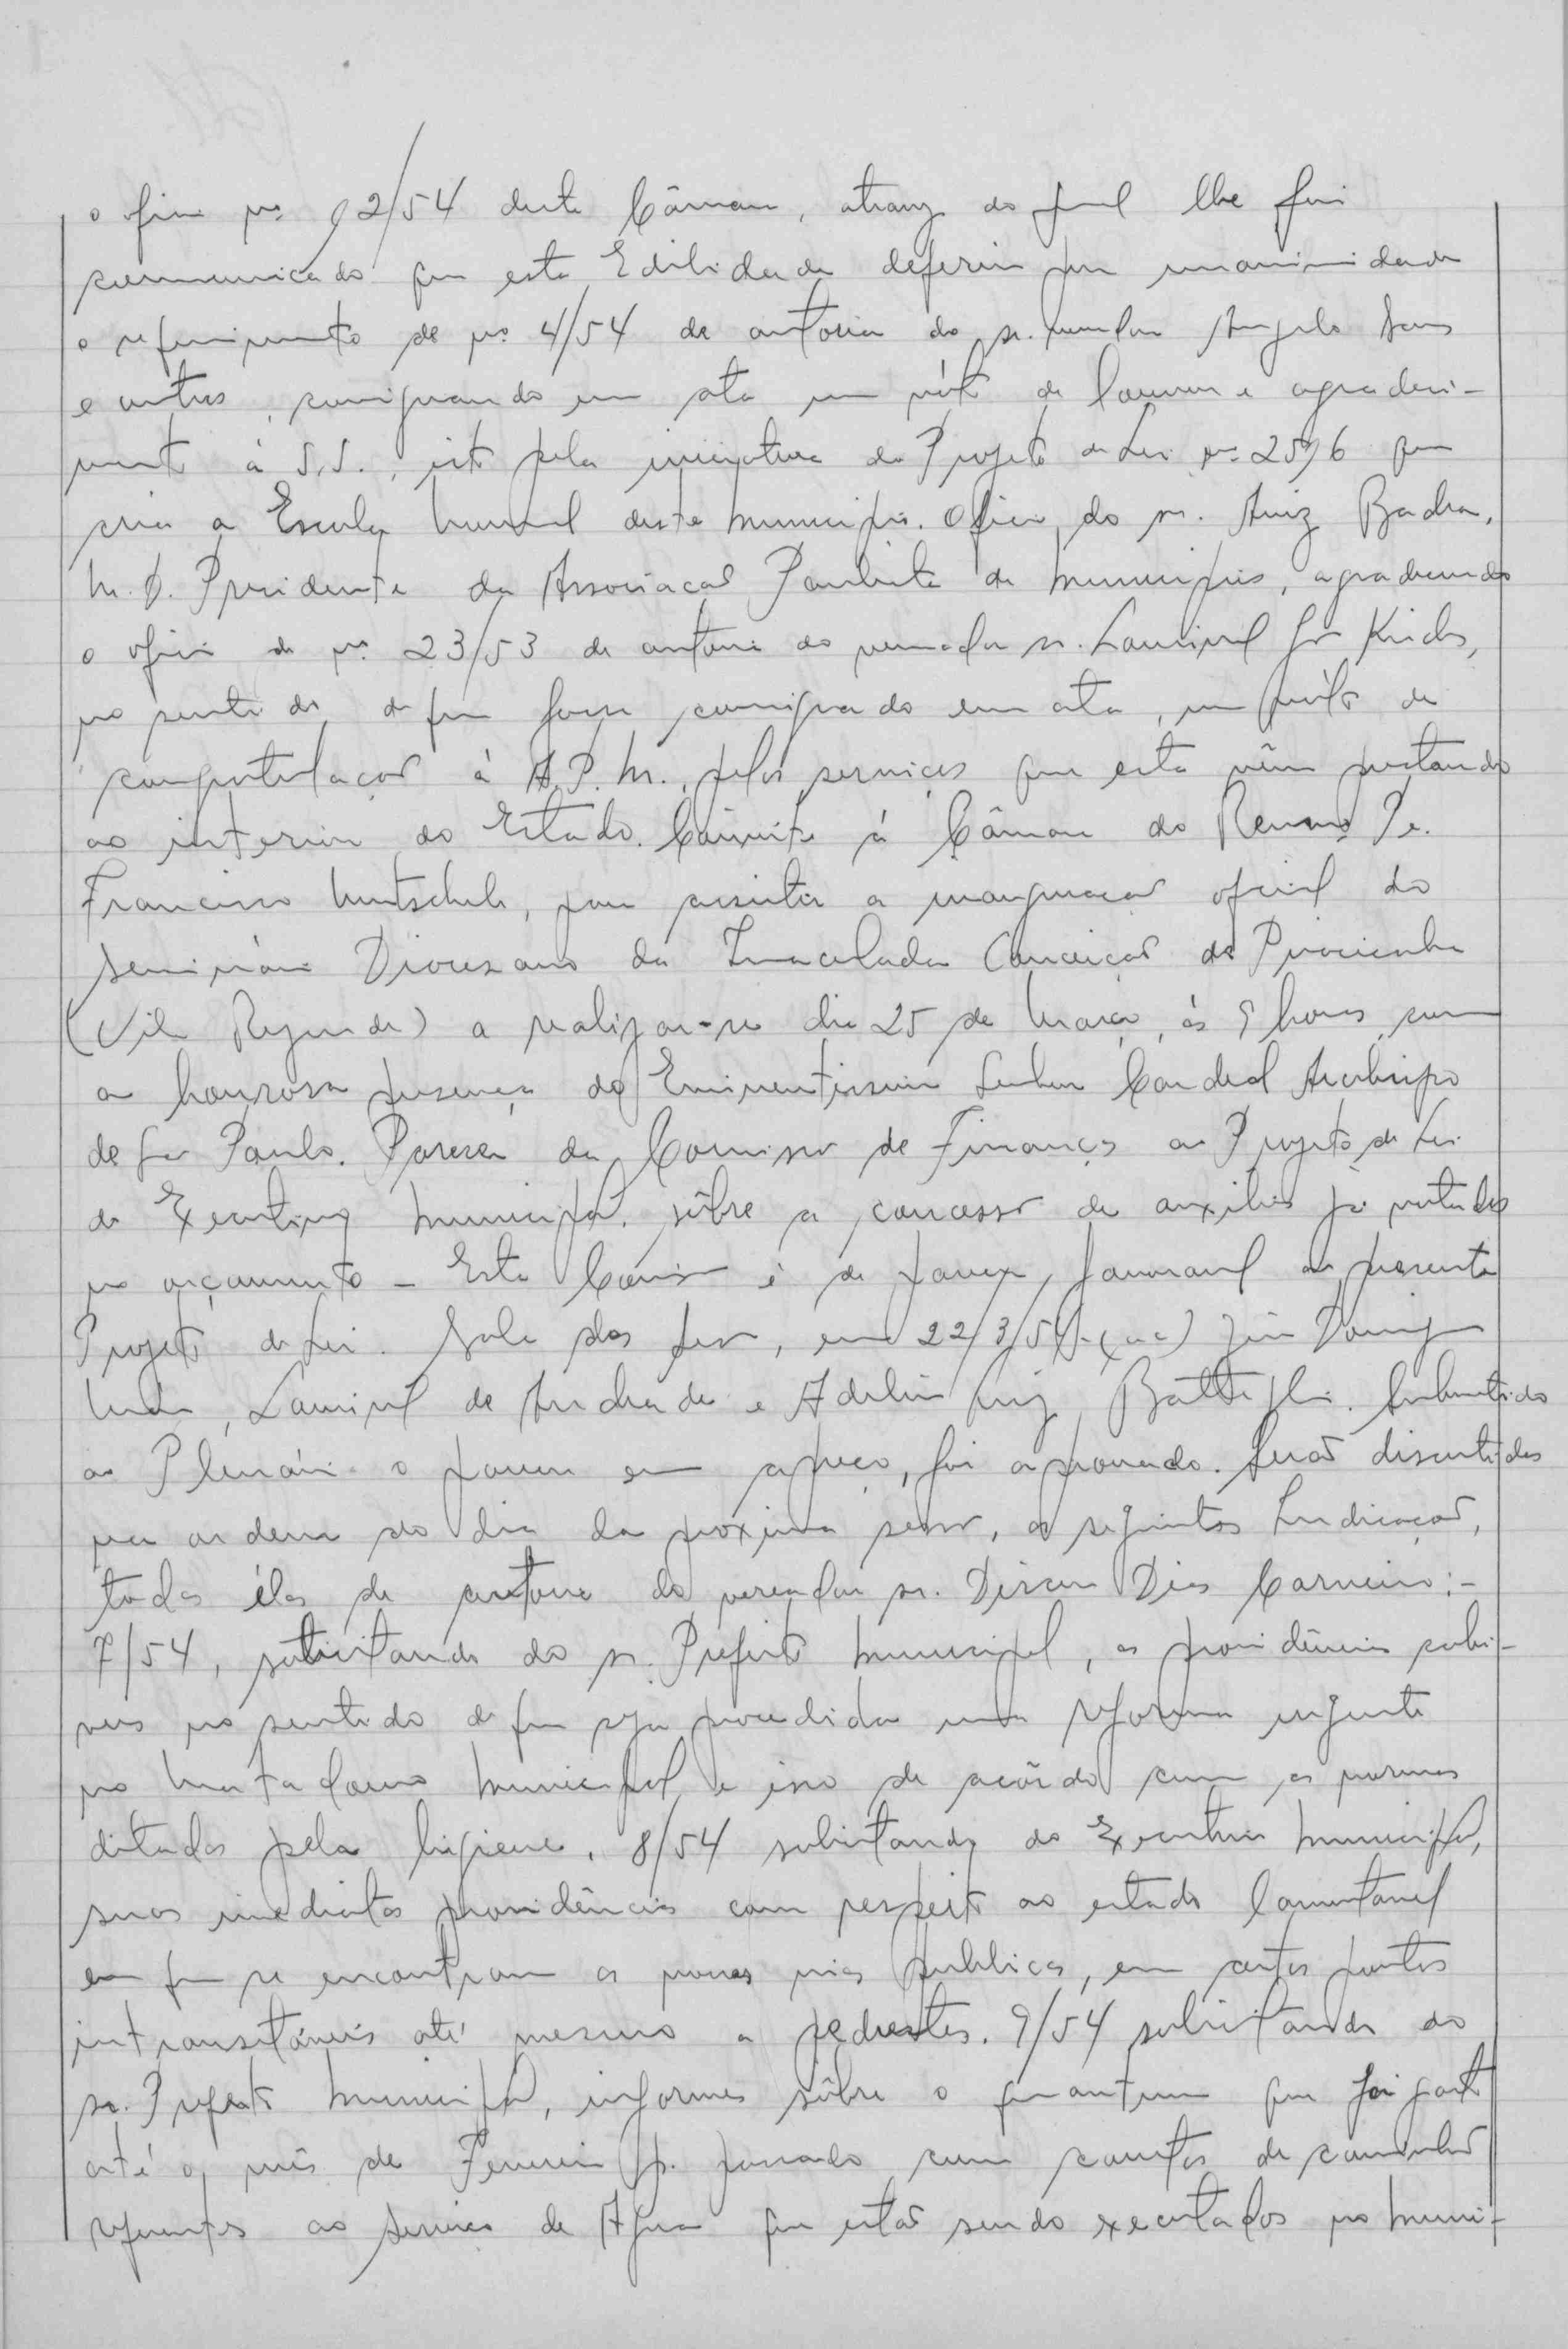 o ofício nº 92/54 desta Câmara, atravez do qual lhe foi
comunicado que esta Edilidade deferiu por unanimidade
o requerimento de nº 4/54 de autoria do sr. vereador Angelo
e outros, consignando em ata um vóto de louvor e agradeci-
mento à S.S., isto pela iniciativa do Projeto de Lei nº 25/6 que
cria a Escola Normal deste Municipio. Oficio do sr. Aniz Badra,
M.D. Presidente da Associação Paulista de Municipios, agradecendo
o oficio de nº 23/53 de autoria do vereador sr. Lourival
no sentido de que fosse consignado em ata, um vóto de
congratulação à A.P.M., pelos serviços que esta vêm prestando
ao interior do Estado. Convite à Câmara do Revmo Pe.
Francisco Mutschele, para assistir a inauguração oficial do
Seminário Diocesano da Imaculada Conceição de Piracicaba
(Vila Rezende) a realizar-se dia 25 de Março, às 9 horas, com
a honrosa presença do Eminentissimo Senhor Cardeal Arcebispo
de São Paulo. Parecer da Comissão de Finanças ao Projeto de Lei
do Executivo Municipal, sôbre a concessão de auxilios já votados
no orçamento - Esta Comissão é de parecer favoravel ao presente
Projeto de Lei. Sala das Sessões, em 22/3/54. (aa) José Domingues
Lourival de Andrade e Adelino Luiz Battaglia. Submetido
ao Plenário o parecer em apreço, foi aprovado. Serão discutidas
na ordem do dia da próxima sessão, as seguintes Indicações,
todas élas de autoria do vereador sr. Dirceu Dias Carneiro:-
7/54, solicitando do sr. Prefeito Municipal, as providências cabi-
veis no sentido de que seja procedida uma reforma urgente
no Matadouro Municipal e isso de acôrdo com as normas
ditadas pela higiene. 8/54 solicitando do Executivo Municipal,
suas imediatas providências com respeito ao estado lamentavel
em que se encontram as nossas vias publicas, em certos pontos
intransitáveis até mesmo a pedestes. 9/54 solicitando do
sr. Prefeito Municipal, informes sôbre o quantum que foi gasto
até o mês de Fevereiro p. passado com carretos de caminhão
referentes ao Serviço de Agua que estão sendo executados no Muni-